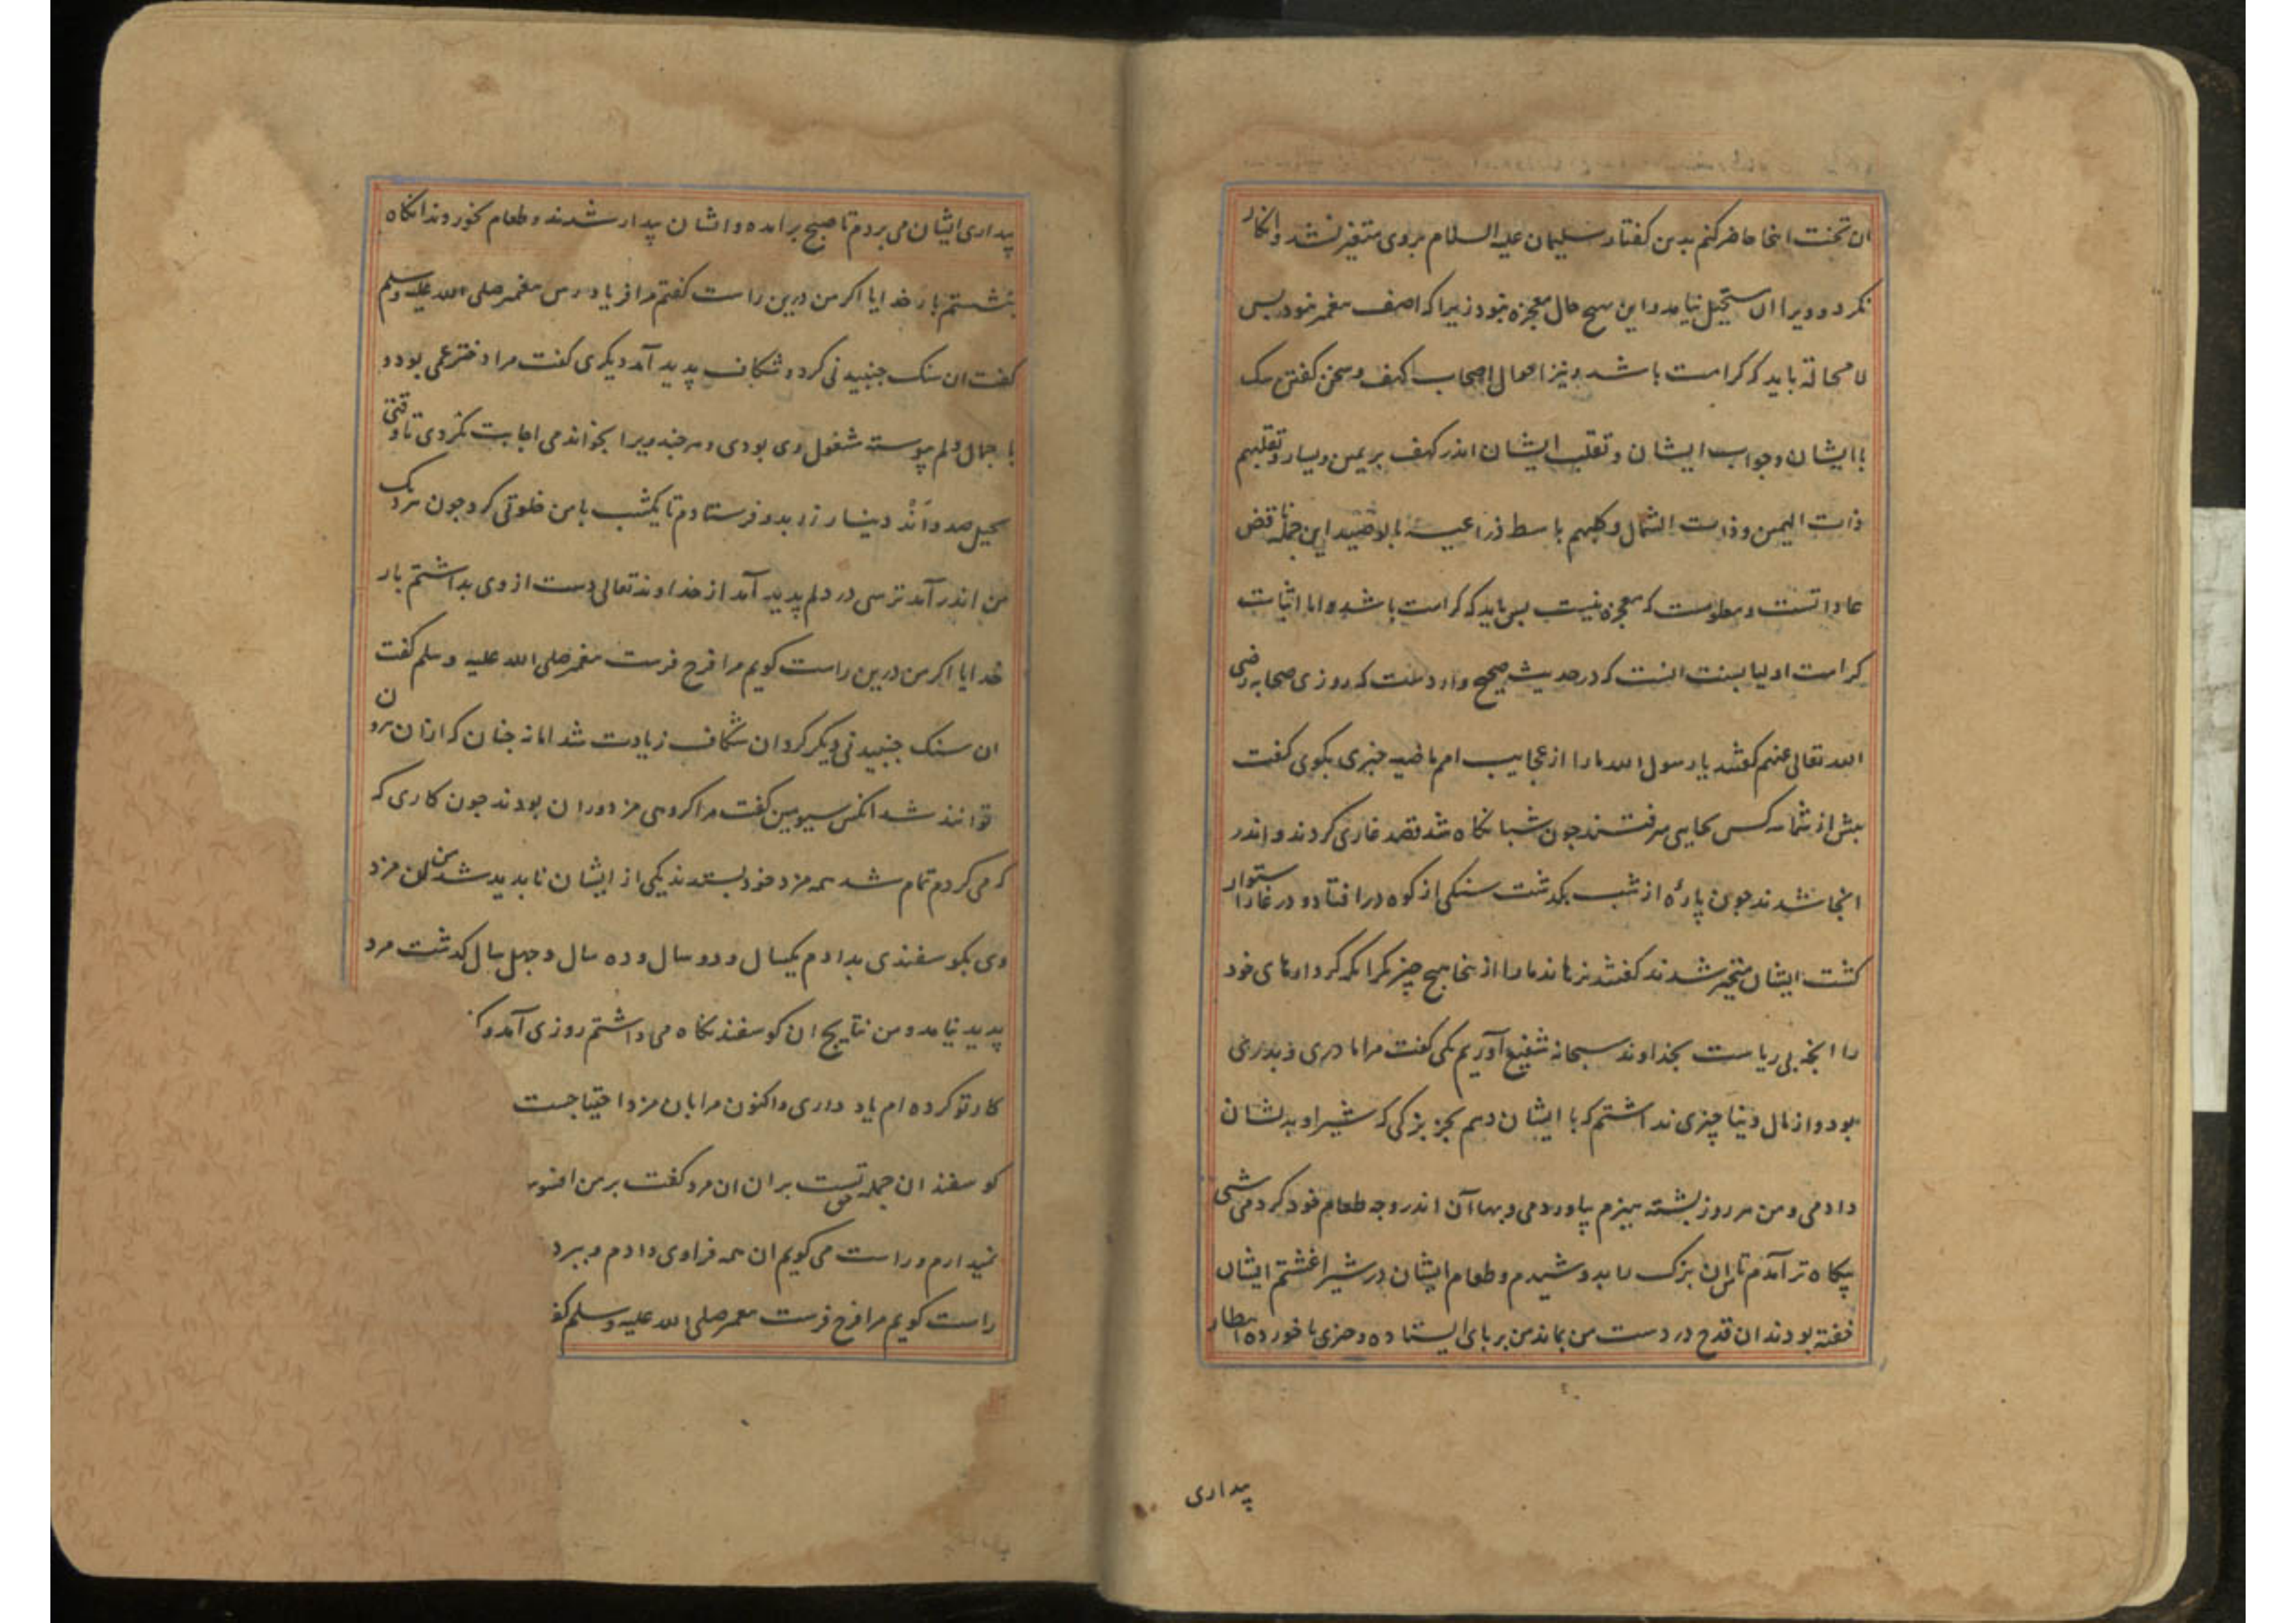 ان تخت اینجا حاضر کنم بدین کفتار سلیمان علیه السلام بروی متغیر نشد و انکار
نکرد و ویرا ان مستحیل نیامد و این هیچ حال معجزه نبود زیرا که اصف پیغمبر نبود پس
لا محاله باید که کرامت باشد و نیز احوال اصحاب کهف و سخن کفتن سک
با ایشان و خواب ایشان و تقلب ایشان اندر کهف بر یمین و یسار و تقلبهم
ذات الیمین و ذات الشمال و کلبهم باسط ذراعیه بالوصید این جمله ناقض
عاداتست و معلومست که معجزه نیست پس باید که کرامت باشد و اما اثبات
کرامت اولیا بسنت انست که در حدیث صحیح واردست که روزی صحابه رضی
الله تعالی عنهم کفتند یا رسول الله ما را از عجایب امم ماضیه خبری بکوی کفت
پیش از شما سه کس بجایی میرفتند جون شبانکاه شد قصد غاری کردند و اندر
انجا شدند جون پارهٔ از شب بکذشت سنکی از کوه در افتاد و در غار استوار
کشت ایشان متحیر شدند کفتند نرهاند ما را از ینجا هیچ چیز مکر انکه کردارهای خود
را انچه بی ریاست بخداوند سبحانه شفیع آوریم یکی کفت مرا مادری و پدری
بود و از مال دنیا چیزی نداشتم که با ایشان دهم بجز بزکی که شیر او بدیشان
دادمی و من هر روز پشته هیزم بیاوردمی و بهاء آن اندر وجه طعام خود کردمی شبی
بیکاه تر آمدم تا من ان بزک را بدوشیدم و طعام ایشان در شیر اغشتم ایشان
خفته بودند ان قدح در دست من بماند من بر پای ایستاده و چیزی نا خورده انتظار
بیداری
بیداری ایشان می بردم تا صبح برامد و ایشان بیدار شدند و طعام بخوردند انکاه
بنشستم بار خدایا اکر من درین راست کفتم مرا فریاد رس پیغمبر صلی الله علیه وسلم
کفت ان سنک جنبیدنی کرد و شکاف پدید آمد دیکری کفت مرا دختر عمی بود و
با جمال دلم پیوسته مشغول وی بودی و هرجند ویرا بخواندمی اجابت نکردی تا وقتی
بحیل صد و اند دینار زر بدو فرستادم تا یکشب با من خلوتی کرد جون نزدیک
من اندر آمد ترسی در دلم پدید آمد از خداوند تعالی دست از وی بداشتم بار
خدایا اکر من درین راست کویم مرا فرج فرست پیغمبر صلی الله علیه وسلم کفت
ان سنک جنبیدنی دیکر کرد ان شکاف زیادت شد اما نه جنان که ازان برون
توانند شد انکس سیومین کفت مرا کروهی مزدوران بودند جون کاری که
که می کردم تمام شد همه مزد خود بستدند یکی از ایشان نابدید شد من ان مزد
وی بکوسفندی بدادم یکسال و دو سال و ده سال و جهل سال کذشت مرد
پدید نیامد و من نتایج ان کوسفند نکاه می داشتم روزی آمد و
کار تو کرده ام یاد داری و اکنون مرا بان مزد احتیاجست
کوسفندان جمله حق تست بران ان مرد کفت بر من افسوس
نمیدارم و راست می کویم ان همه فرا وی دادم و ببرد
راست کویم مرا فرج فرست پیغمبر صلی الله علیه وسلم کفت